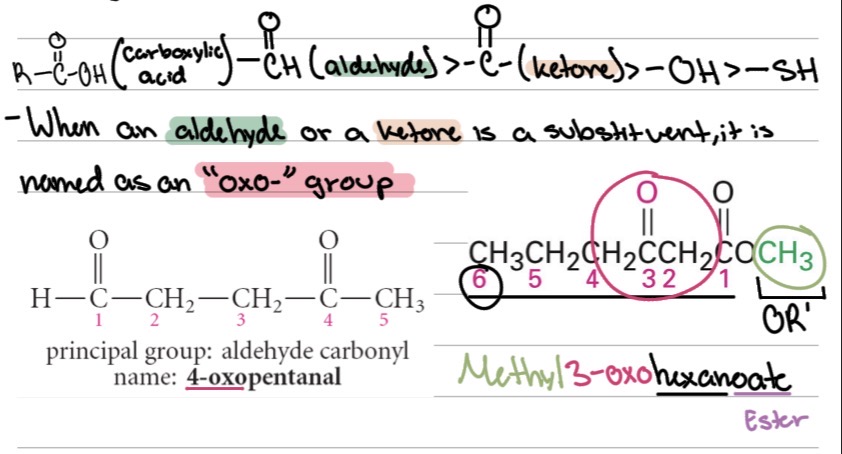 O
R-C-OH (carboxylic acid) -CH (aldehyde) > -C- (ketone) > -OH > -SH
O
O
-When an aldehyde or a ketone is a substituent, it is
named as an "oxo-" group
O O
H—C—CH₂—CH₂—C—CH₃
1 2 3 4 5
principal group: aldehyde carbonyl
name: 4-oxopentanal
O O
CH₃CH₂CH₂CCH₂COCH₃
6 5 4 3 2 1
OR'
Methyl 3-oxohexanoate
Ester